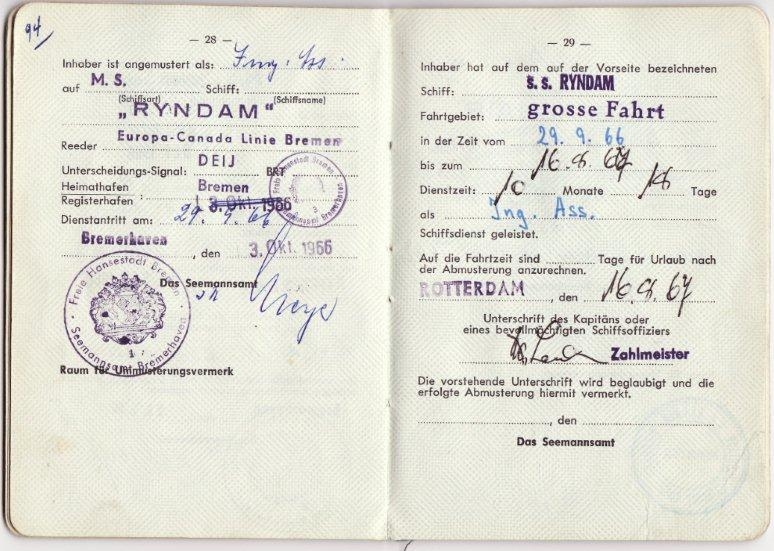 94
— 28 —
Inhaber ist angemustert als: Ing. Ass.
auf M. S. Schiff:
(Schiffsart) (Schiffsname)
„RYNDAM“
Reeder Europa-Canada Linie Bremen
Unterscheidungs-Signal: DEIJ BRT
Heimathafen
Registerhafen : Bremen
Dienstantritt am: 29. 9. 66 3. Okt. 1966
Bremerhaven, den 3. Okt. 1966
Das Seemannsamt
Freie Hansestadt Bremen
Seemannsamt Bremerhaven
Freie Hansestadt Bremen
Seemannsamt Bremerhaven
1
Raum für Ummusterungsvermerk
— 29 —
Inhaber hat auf dem auf der Vorseite bezeichneten
Schiff: S. S. RYNDAM
Fahrtgebiet: grosse Fahrt
in der Zeit vom 29. 9. 66
bis zum 16. 8. 67
Dienstzeit: 10 Monate 18 Tage
als Ing. Ass.
Schiffsdienst geleistet.
Auf die Fahrtzeit sind Tage für Urlaub nach
der Abmusterung anzurechnen.
ROTTERDAM, den 16. 8. 67
Unterschrift des Kapitäns oder
eines bevollmächtigten Schiffsoffiziers
Zahlmeister
Die vorstehende Unterschrift wird beglaubigt und die
erfolgte Abmusterung hiermit vermerkt.
, den
Das Seemannsamt